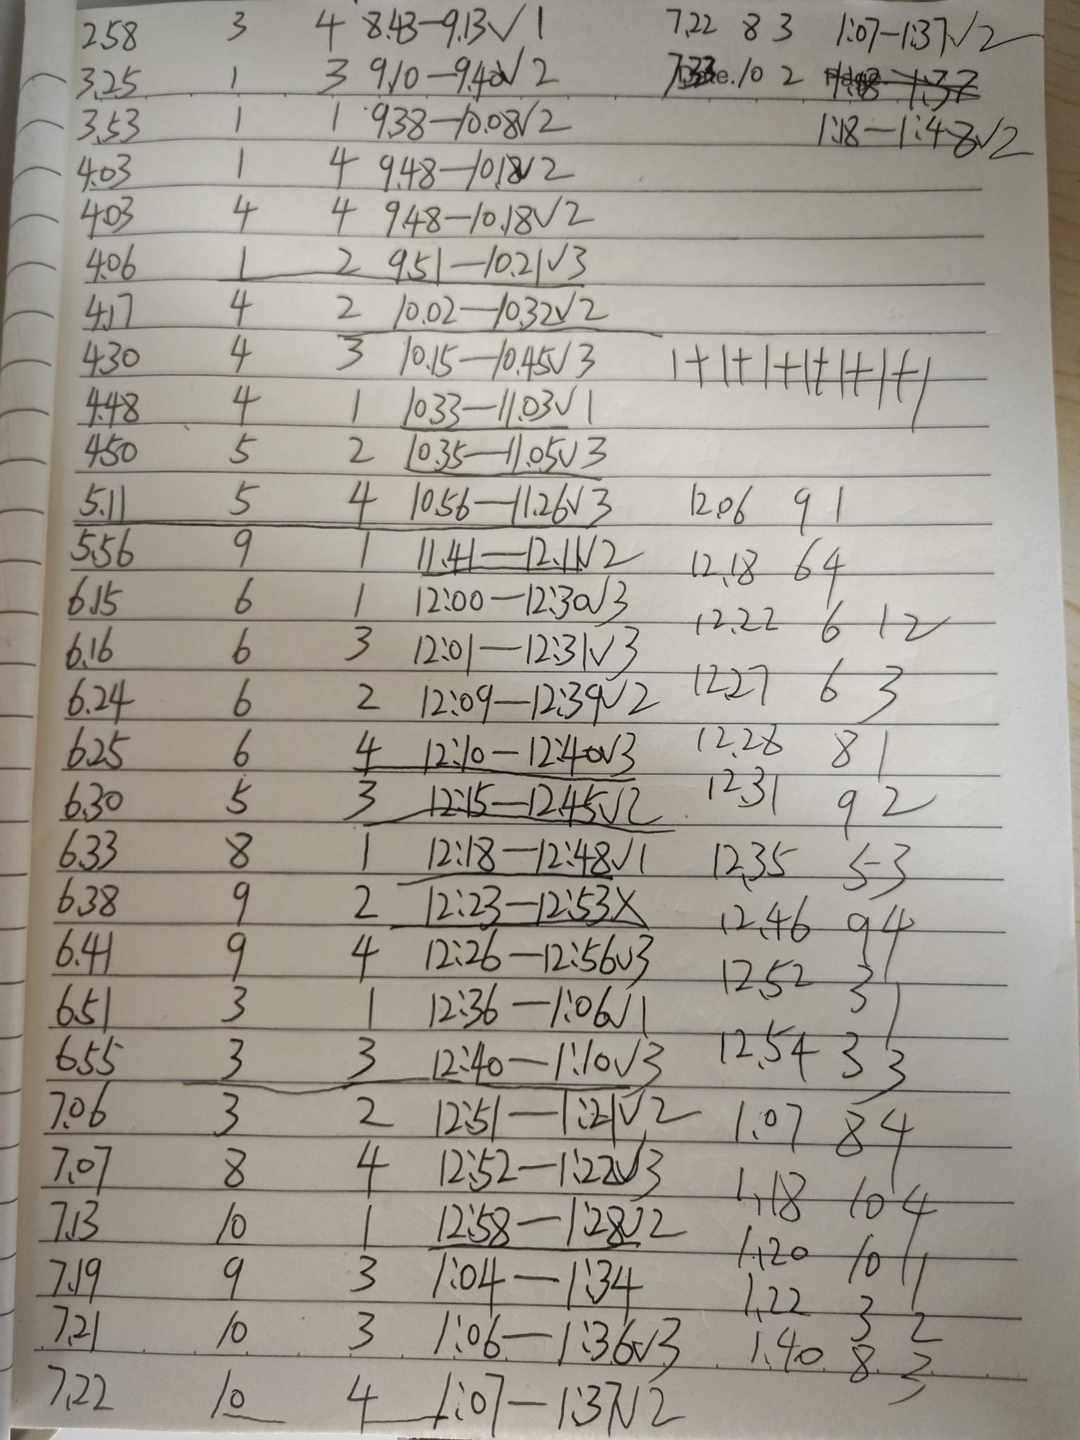 2.58 3 4 8.43—9.13√1 7.22 8 3 1:07—1:37√2
3.25 1 3 9.10—9.40√2 7.33 10 2
3.53 1 1 9.38—10.08√2 1:18—1:48√2
4.03 1 4 9.48—10.18√2
4.03 4 4 9.48—10.18√2
4.06 1 2 9.51—10.21√3
4.17 4 2 10.02—10.32√2
4.30 4 3 10.15—10.45√3
4.48 4 1 10.33—11.03√1
4.50 5 2 10.35—11.05√3
5.11 5 4 10.56—11.26√3 12.06 9 1
5.56 9 1 11.41—12.11√2 12.18 6 4
6.15 6 1 12:00—12:30√3 12.22 6 1 2
6.16 6 3 12:01—12:31√3 12.27 6 3
6.24 6 2 12:09—12:39√2 12.28 8 1
6.25 6 4 12:10—12:40√3 12.31 9 2
6.30 5 3 12:15—12:45√2
6.33 8 1 12:18—12:48√1 12.35 5 3
6.38 9 2 12:23—12:53X 12.46 9 4
6.41 9 4 12:26—12:56√3 12.52 3 1
6.51 3 1 12:36—1:06√1
6.55 3 3 12:40—1:10√3 12.54 3 3
7.06 3 2 12:51—1:21√2 1.07 8 4
7.07 8 4 12:52—1:22√3 1.18 10 4
7.13 10 1 12:58—1:28√2 1.20 10 1
7.19 9 3 1:04—1:34 1.22 3 2
7.21 10 3 1:06—1:36√3 1.40 8 3
7.22 10 4 1:07—1:37√2